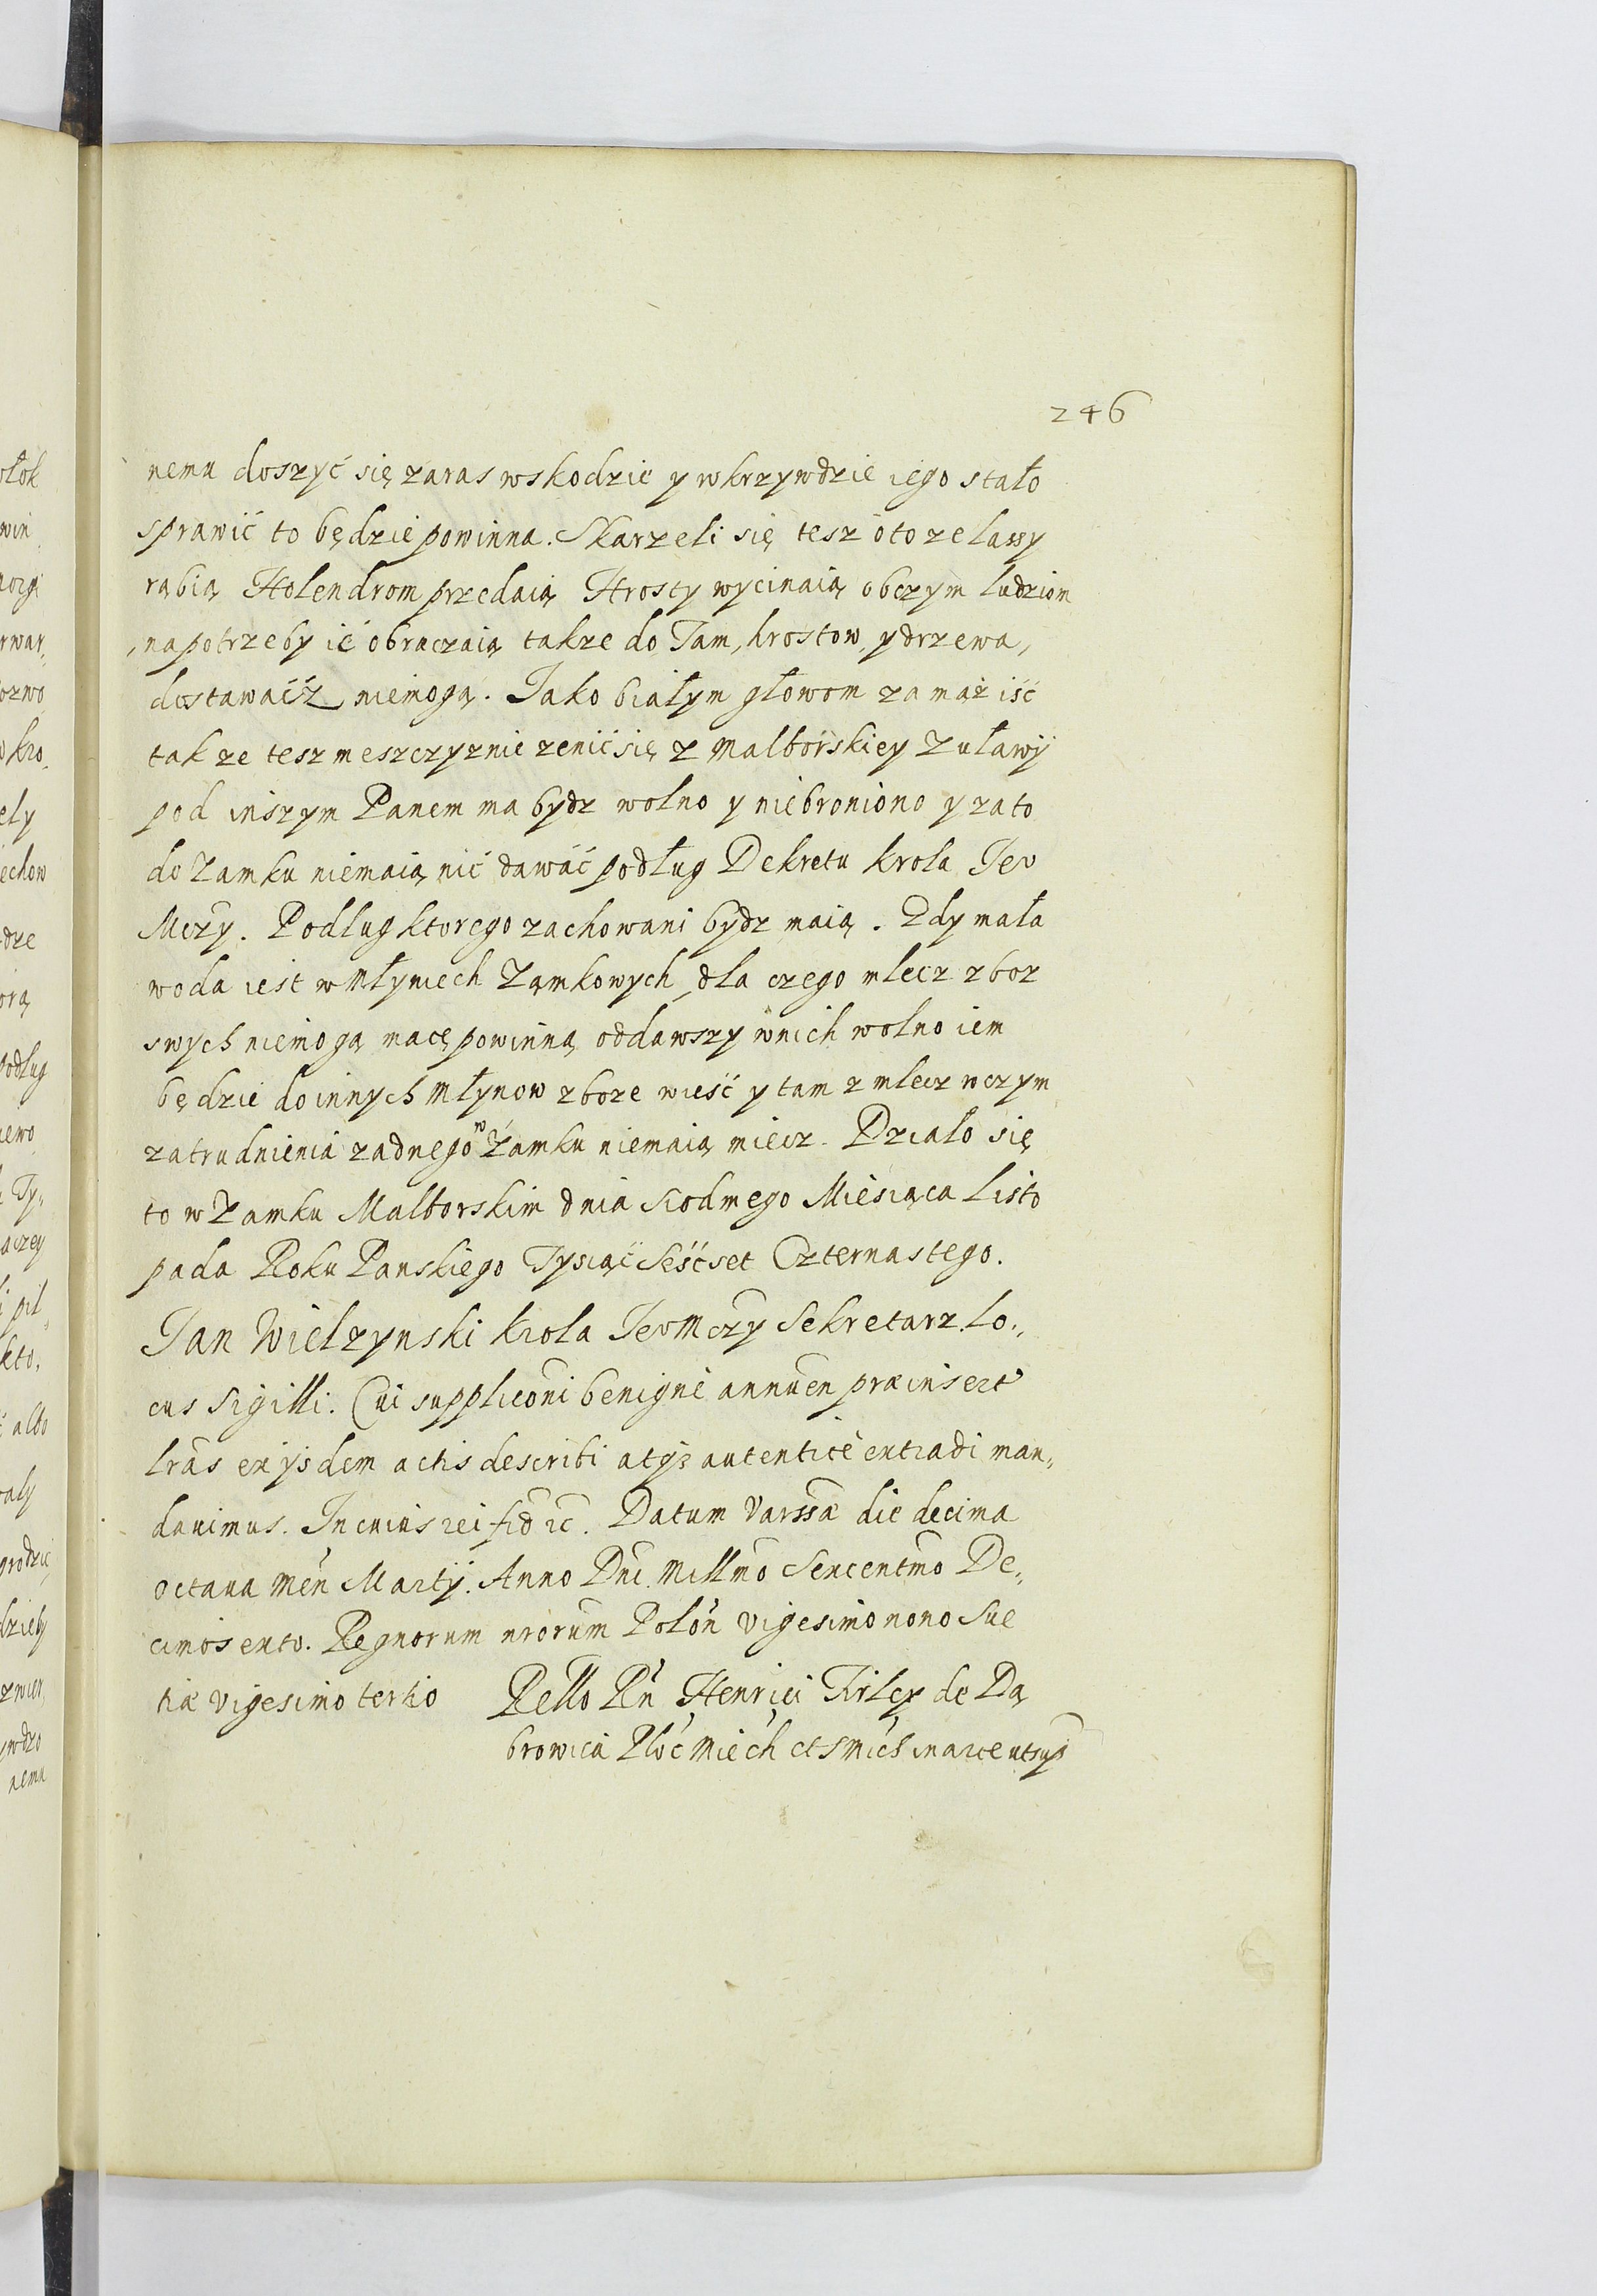 246
nemu doszyć się zaras wskodzie y wkrzywdzie iego stało
sprawić to będzie powinna. Skarzeli się tesz oto ze lassy
rąbią Holendrom przedaią Hrosty wycinaią obczym ludziom
na potrzeby ić obraczaią takze do Tam, hrostow, y drzewa,
dostawaćz niemogą. Jako białym głowom za mąż iść
tak ze tesz meszczyznie zenić się z Malborskiey Zuławÿ
pod inszym Panem ma bydz wolno y niebroniono y zato
do Zamku niemaią nić dawać podług Dekretu krola Jeo
Mczy. Podług ktorego zachowani bydz maią. Gdy mała
woda iest w Młyniech Zamkowych, dla czego mlecz zboz
swych niemogą macę powinną oddawszy wnich wolno iem
będzie do innych Młynow zboze wieść y tam z mlecz wczym
zatrudnienia zadnego w Zamku niemaią miecz. Działo się
to w Zamku Malborskim dnia Siodmego Miesiąca Listo
pada Roku Panskiego Tysiąć Sešćset Czternastego.
Jan Wielzynski krola Jeo Mczy Sekretarz. Lo„
cus Sigilli. Cui suppliconi benigne annuen præinsert
lras ex ijsdem actis describi atqz autentice extradi man„
davimus. In cuius rei fid rc. Datum Varssæ die decima
octava Men Martÿ. Anno Dni. Millmo Sexcentmo De„
cimosexto. Regnorum nrorum Polon vigesimo nono Sue
tiæ vigesimo tertio
Rello Rn Henrici Firley de Dą
browica Ploc Miech et Smich in arce utsup